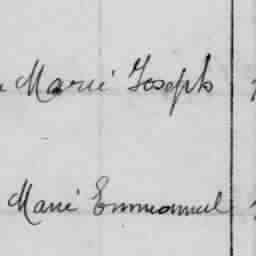 Marie Joseph
Marie Emmanuel